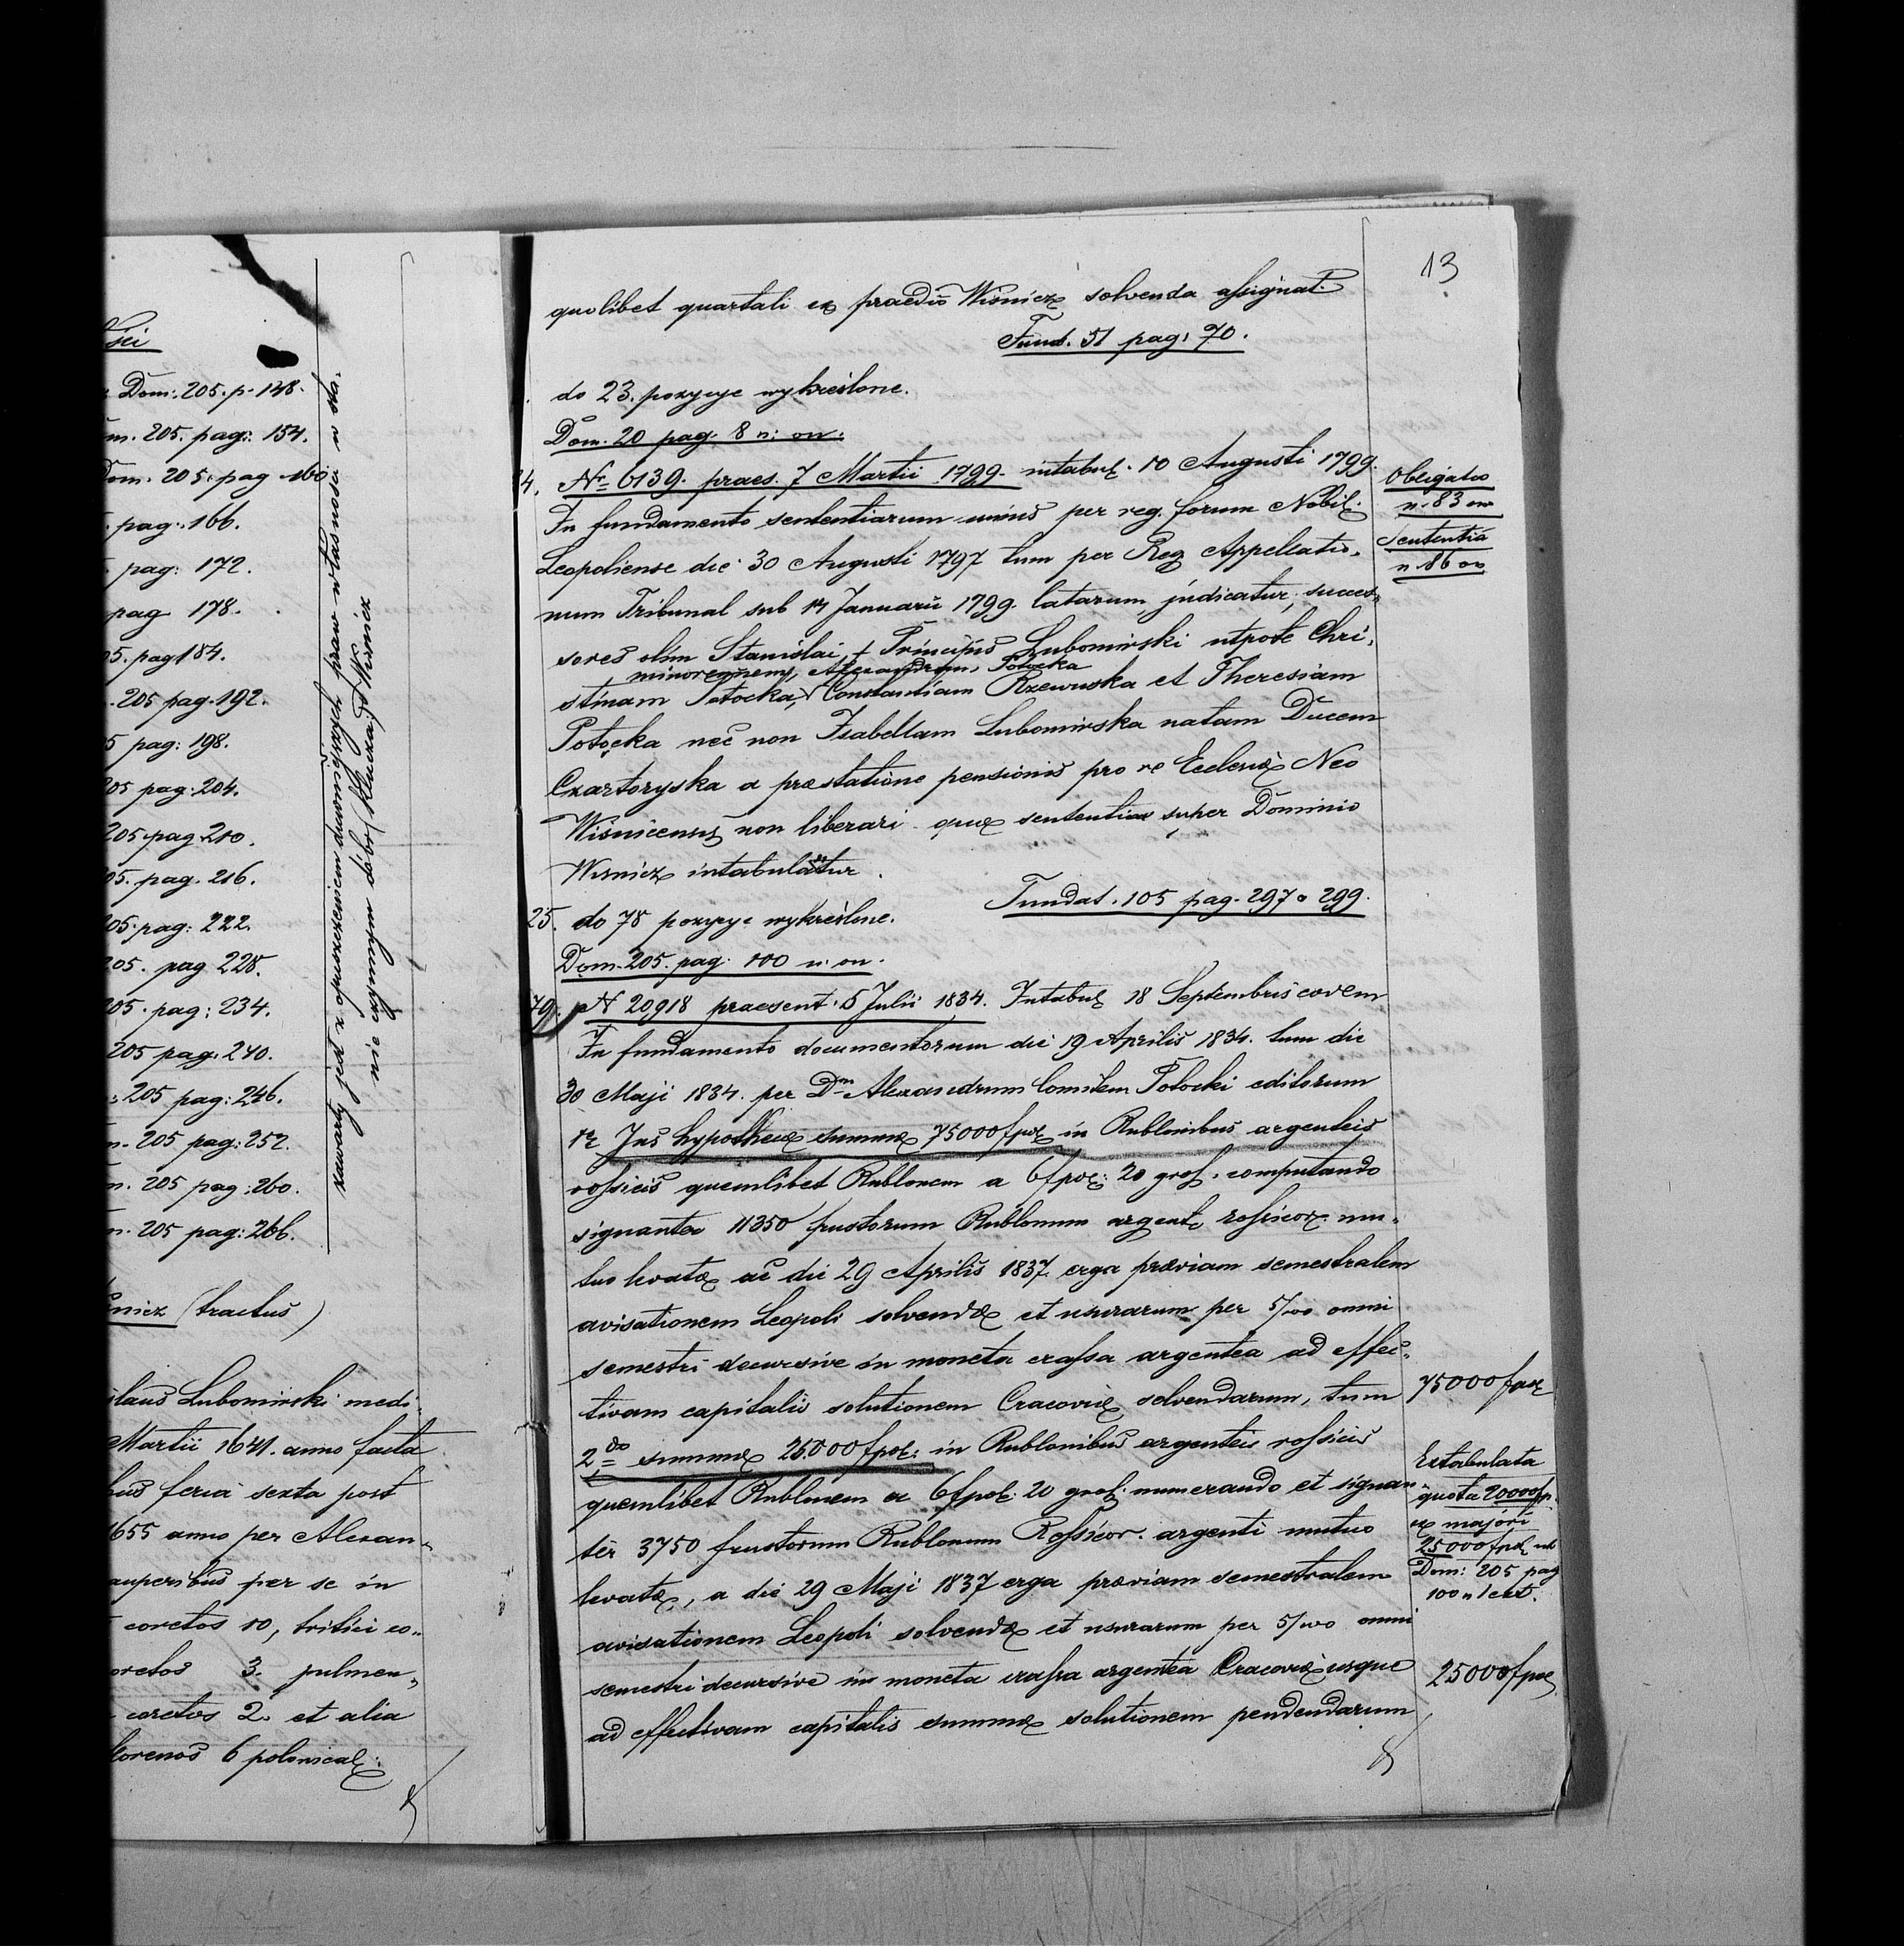 Dom: 205. p. 148.
205. pag: 154.
205. pag 160
pag: 166.
pag: 172.
pag 178.
pag 184.
205 pag. 192.
pag: 198.
pag: 204.
205 pag 210.
pag. 216.
pag: 222.
205. pag 228.
205. pag: 234.
205 pag. 240.
205 pag: 246.
205 pag: 252.
205 pag: 260.
205 pag: 266.
zawarty jest z opuszczeniem
nie czynnym dóbr klucza Wisnicz
(tractus)
Lubomirski medi-
Martii 1641. anno facta
feria sexta post
1655 anno per Alexan-
pauperibus per se in
coretos 10, tritici co-
3. pulmen-
coretos 2. et alia
florenos 6 polonical:
13
quolibet quartali ex praediis Wisnicz solvenda assignat.
Fund. 51 pag. 70.
do 23. pozycye wykreślone.
Dom. 20 pag. 8 n: on:
24. Nr 6139. praes. 7 Martii 1799. intabul. 10 Augusti 1799.
Obligatio
n. 83 on
Sententia
n 86 on
In fundamento sententiarum unius per reg. forum Nobil.
Leopoliense die 30 Augusti 1797 tum per Reg Appellatio-
num Tribunal sub 14 Januarii 1799. latarum, judicatur, succes-
sores olim Stanislai + Principis Lubomirski utpote Chri-
minorennem, Alexandram Potocka
stinam Potocka, Constantiam Rzewuska et Theresiam
Potocka nec non Isabellam Lubomirska natam Ducem
Czartoryska a praestatione pensionis pro re Ecclesiæ Neo
Wisnicensis non liberari quæ sententiæ super Dominio
Wisnicz intabulatur.
Fundat. 105 pag. 297 a 299.
25. do 78 pozycye wykreślone.
Dom. 205. pag. 100 n: on.
79. N 20918 praesent. 5 Julii 1834. Intabul 18 Septembris eodem
In fundamento documentorum die 19 Aprilis 1834. tum die
30 Maji 1834. per Dm Alexandrum Comitem Potocki editorum
Jus hypothecæ summæ 75000 fpol in Rublonibus argenteis
rossicis quemlibet Rublonem a 6 fpol: 20 gros. computando
signanter 11350 frustorum Rublonum argent. rossicor. mu-
tuo levatæ ac die 29 Aprilis 1837 erga praeviam semestralem
avisationem Leopoli solvendæ et usurarum per 5/100 omni
semestri decursive in moneta crassa argentea ad effec-
tivam capitalis solutionem Cracoviæ solvendarum, tum
75000 fpol
2do summæ 25000 fpol: in Rublonibus argenteis rossicis
quemlibet Rublonem a 6 fpol: 20 gros. numerando et signan-
ter 3750 frustorum Rublonum Rossicor. argenti mutuo
levatæ, a die 29 Maji 1837 erga praeviam semestralem
avisationem Leopoli solvendæ et usurarum per 5/100 omni
semestri decursive in moneta crassa argentea Cracoviæ usque
ad effectivam capitalis summæ solutionem pendendarum
Extabulata
quota 20000 fp.
ex majori
25000 fpol
Dom: 205 pag
100 n 1 ext.
25000 fpol